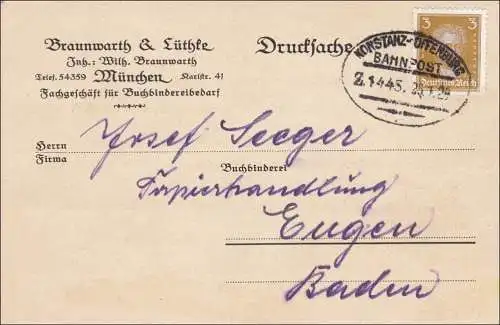 Braunwarth & Lüthke
Inh.: Wilh. Braunwarth
Telef. 54359 München Karlstr. 41
Fachgeschäft für Buchbindereibedarf
Drucksache
KONSTANZ-OFFENBURG
BAHNPOST
Z.1443.
3 3
Deutsches Reich
Herrn Josef Seeger
Firma
Buchbinderei
Papierhandlung
Engen
Baden